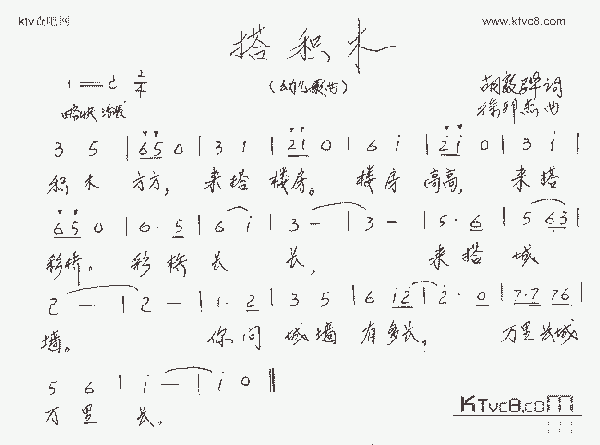 ktv点吧网 www.ktvc8.com
搭积木
(幼儿歌曲)
1=C 2/4 胡敦骅词
略快 活泼 徐邦杰曲
3 5 | 6 5 0 | 3 1 | 2 1 0 | 6 i | 2 i 0 | 3 1 |
积木 方方, 来搭 楼房。 楼房 高高, 来搭
6 5 0 | 6· 5 | 6 i | 3 — | 3 — | 5· 6 | 5 6 3 |
移桥。 移桥长 长, 来搭 城
2 — | 2 — | 1· 2 | 3 5 | 6 i 2 | 2· 0 | 7·7 7 6 |
墙。 你问 城墙 有多长, 万里长城
5 6 | i — | i 0 ‖
万里 长。
KTvc8.com